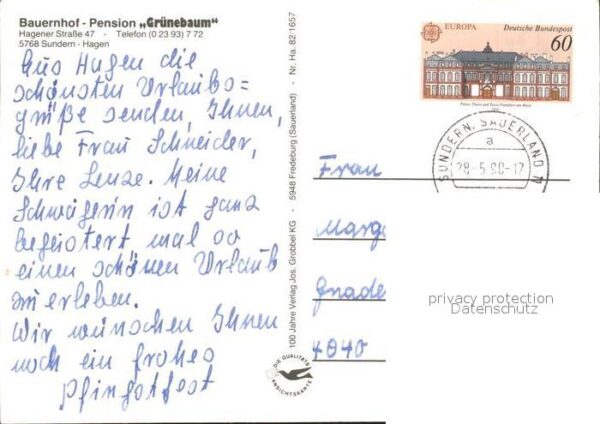 Bauernhof - Pension „Grünebaum"
Hagener Straße 47 - Telefon (0 23 93) 7 72
5768 Sundern - Hagen
Aus Hagen die
schönsten Urlaubs=
grüße senden, Ihnen,
liebe Frau Schneider,
Ihre Lenze. Meine
Schwägerin ist ganz
begeistert mal so
einen schönen Urlaub
zu erleben.
Wir wünschen Ihnen
noch ein frohes
Pfingstfest
100 Jahre Verlag Jos. Grobbel KG - 5948 Fredeburg (Sauerland) - Nr. Ha. 82:1657
DIE QUALITÄTS
ANSICHTSKARTE
EUROPA
Deutsche Bundespost
60
Palais Thurn und Taxis Frankfurt am Main
SUNDERN, SAUERLAND 11
a
28.-5.90-17
Frau
Marga
Gnade
4040
privacy protection
Datenschutz